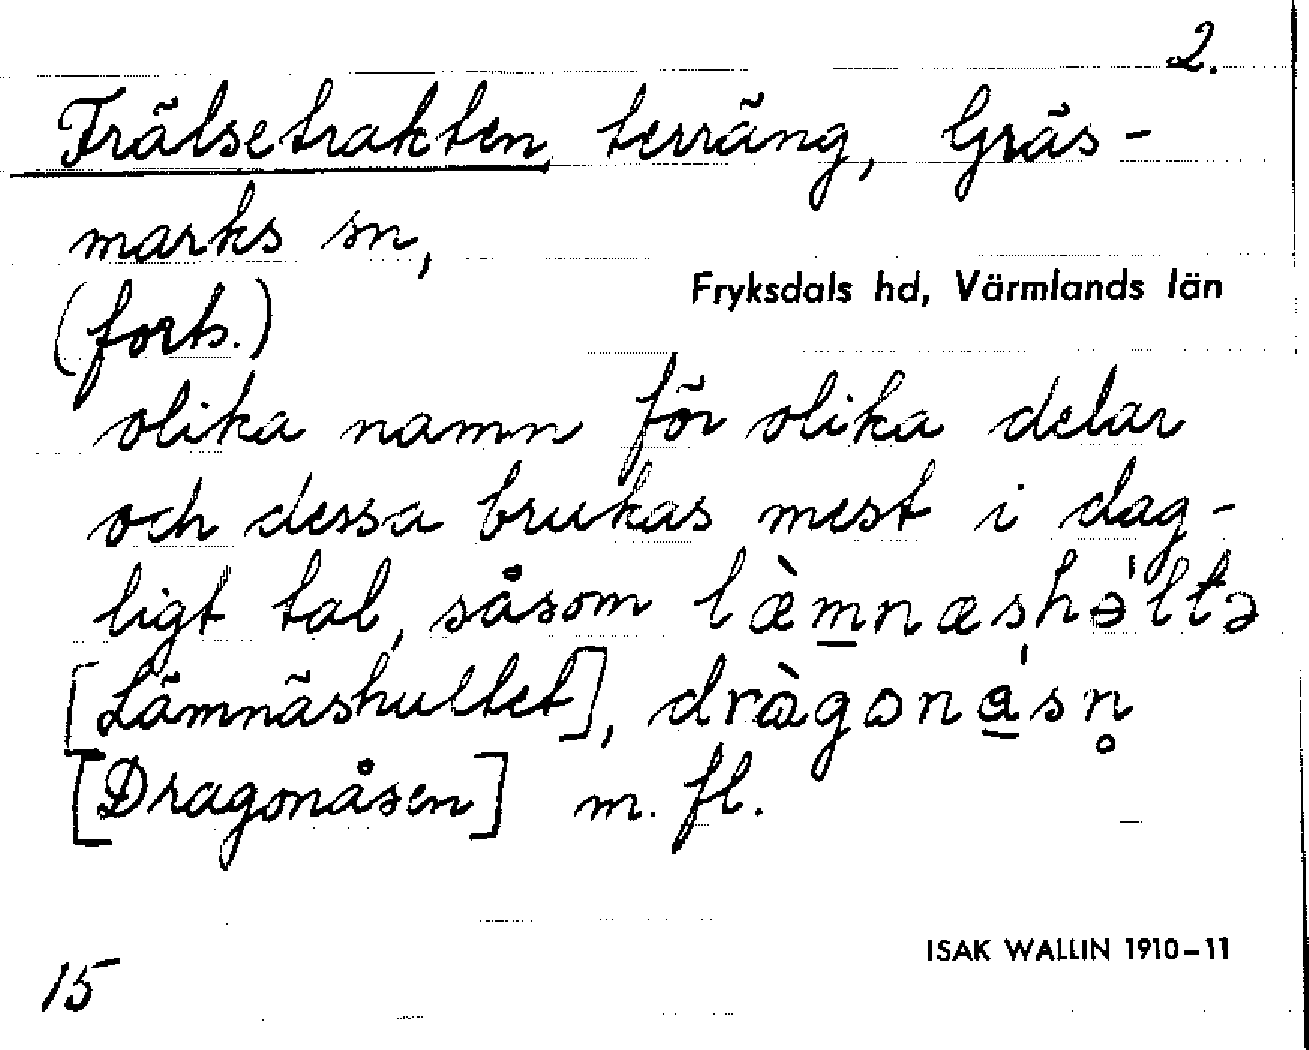 2.
Frälsetrakten, terräng, Gräs-
marks sn,
Fryksdals hd, Värmlands län
(forts.)
olika namn för olika delar
och dessa brukas mest i dag-
ligt tal, såsom
[Lämnäshultet],
[Dragonåsen] m. fl.
ISAK WALLIN 1910-11
15